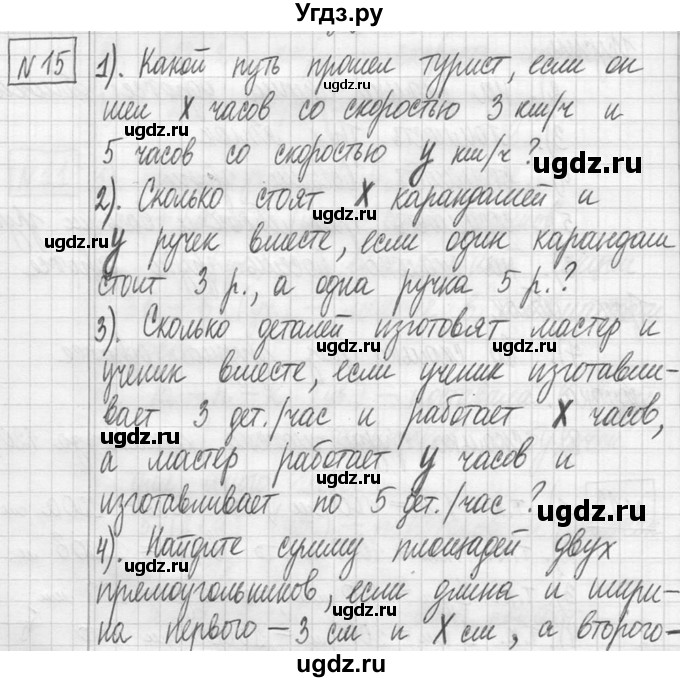 Угдз.ру
N 15 1). Какой путь прошел турист, если он
шел X часов со скоростью 3 км/ч и
ugdz.ru ugdz.ru
5 часов со скоростью y км/ч?
ugdz.ru ugdz.ru
2). Сколько стоят X карандашей и
ugdz.ru
y ручек вместе, если один карандаш
ugdz.ru ugdz.ru
стоит 3 р., а одна ручка 5 р.?
3). Сколько деталей изготовят мастер и
ugdz.ru ugdz.ru
ученик вместе, если ученик изготавли-
вает 3 дет./час и работает X часов,
ugdz.ru ugdz.ru
а мастер работает y часов и
ugdz.ru
изготавливает по 5 дет./час?
ugdz.ru ugdz.ru
4). Найдите сумму площадей двух
прямоугольников, если длина и шири-
ugdz.ru
на первого - 3 см и X см, а второго-
ugdz.ru ugdz.ru
ugdz.ru